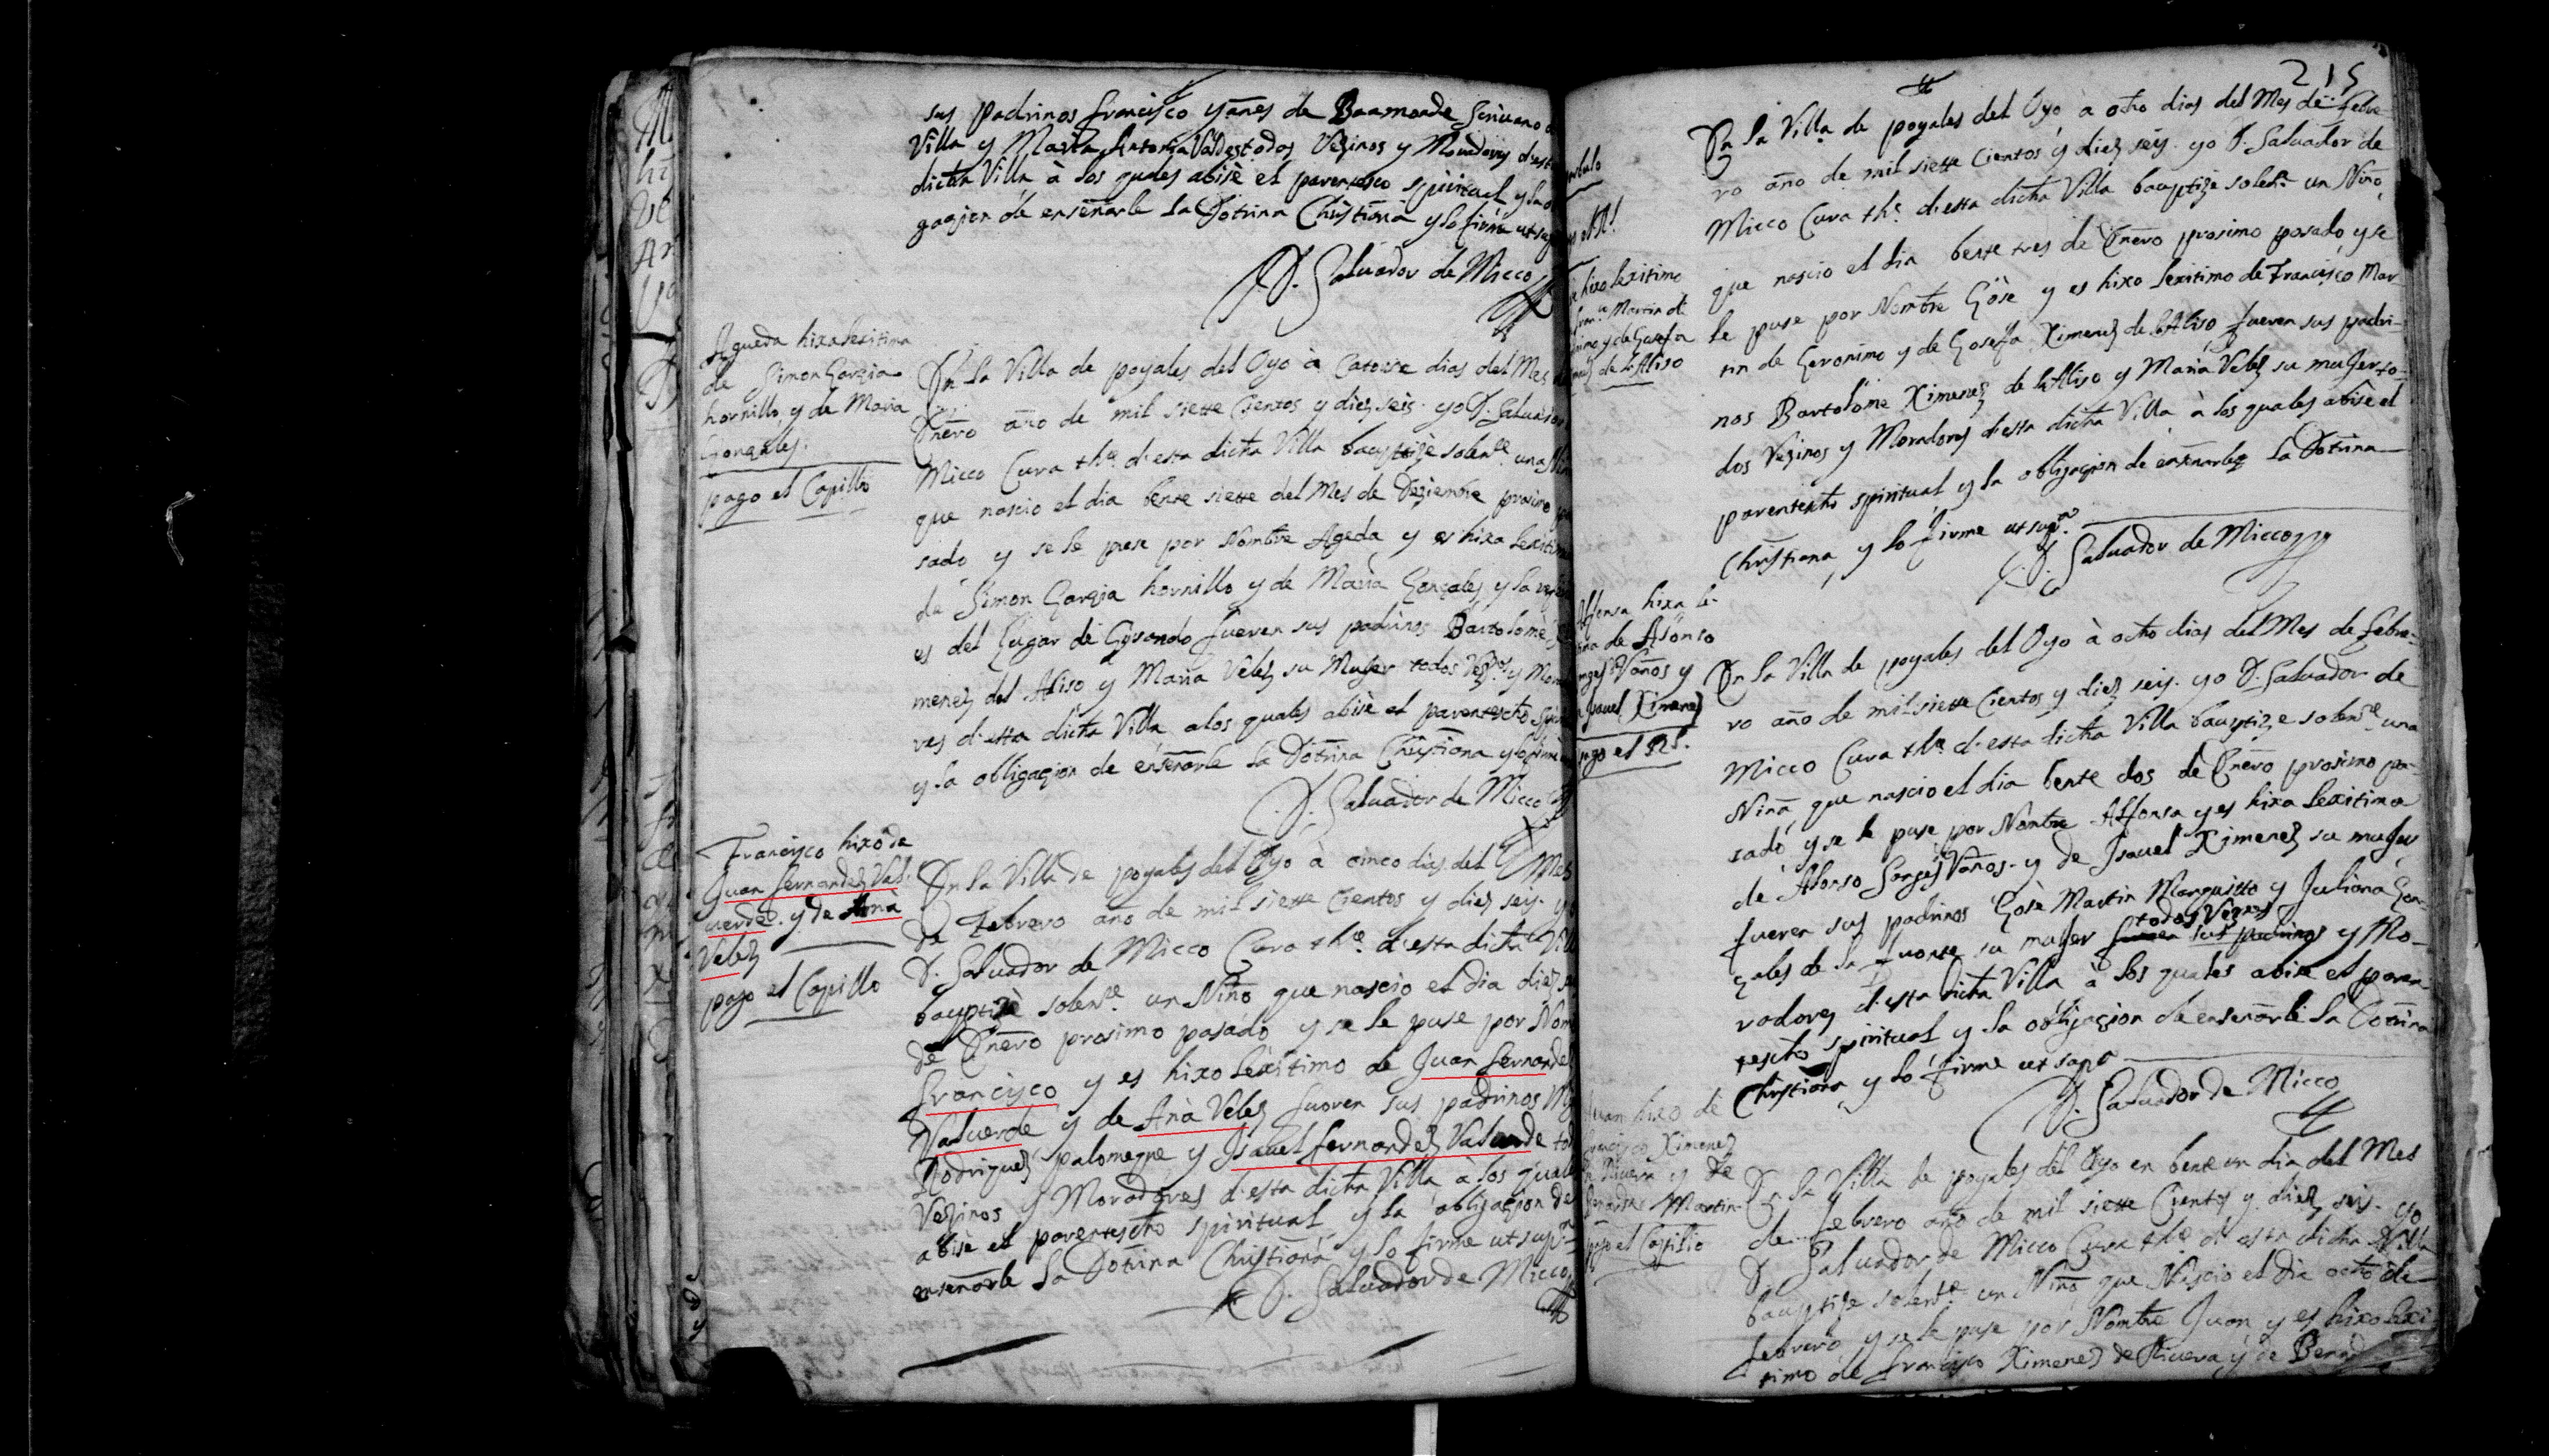 sus padrinos francisco yanes de Baamonde Scriuano
Villa y Maria Antonia Valdes todos Vezinos y Moradores desta
dicha Villa à los quales abisè el parentesco spiritual y la o
gazion de enseñarle la Dotrina Christiana y lo firmè ut sup
D. Saluador de Micco
Agueda hixa lexitima
de Simon Garzia
hornillo, y de Maria
Gonzales.
pago el Capillo
En la Villa de poyales del Oyo à Catorse dias del Mes
Enero año de mil siette Cientos y diez seis. yo D. Saluador
Micco Cura the. desta dicha Villa bauptizè solenre. una Niñ
que nascio el dia bente siette del Mes de Deziembre proximo
sado y se le puse por Nombre Ageda y es hixa lexitima
de Simon Garzia hornillo y de Maria Gonzales y la
es del Lugar de Gusando fueron sus padrinos Bartolomè
menez del Aliso y Maria Velez su Muger todos Vezos. y Mora
res desta dicha Villa, a los quales abisè el parentescho spi
y la obligazion de enseñarle la Dotrina Christiana y lo firmè
D. Saluador de Micco
Francisco hixo de
Juan fernandez Val-
uerde. y de Ana
Velez
pago el Capillo
En la Villa de poyales del Oyo à cinco dias del Mes
de Febrero año de mil siette Cientos y diez seis. y
D. Saluador de Micco Cura the. desta dicha Vill
bauptizè solenre. un Niño que nascio el dia diez
de Enero prosimo pasado y se le puse por Nom
francisco y es hixo lexitimo de Juan fernandez
Valuerde y de Ana Velez fueron sus padrinos
Rodriguez palomeque y Isauel fernandez Valuerde tod
Vezinos y Moradores desta dicha Villa à los quale
abisè el parentescho spiritual y la obligazion de
enseñarle la Dotrina Christiana y lo firme ut supra
D. Saluador de Micco
215
hixo lexitimo
Martin de
y de Gosefa
de el Aliso
En la Villa de poyales del Oyo à otho dias del Mes de Febre
ro año de mil siette Cientos y diez seis. yo D. Saluador de
Micco Cura the. desta dicha Villa bauptize solenre. un Niño,
que nascio el dia bente tres de Enero prosimo pasado, y se
le puse por Nombre Gose y es hixo lexitimo de Francisco Mar
tin de Geronimo y de Gosefa Ximenez de el Aliso fueron sus padri-
nos Bartolome Ximenez de el Aliso y Maria Velez su muger to-
dos Vezinos y Moradores desta dicha Villa à los quales abise el
parentescho spiritual y la obligazion de enseñarle la Dotrina
Christiana, y lo firme ut supra.
D. Saluador de Micco
Alfonsa hixa le-
de Alonso
Vaños y
Isauel Ximenez
pago el Rl.
En la Villa de poyales del Oyo à ocho dias del Mes de febre-
ro año de mil siette Cientos y diez seis. yo D. Saluador de
Micco Cura the desta dicha Villa bauptize solenre. una
Niña, que nascio el dia bente dos de Enero prosimo pa-
sado, y se le puse por Nombre Alfonsa y es hixa lexitima
de Alonso Vaños y de Isauel Ximenez su muger
fueron sus padrinos Gose Martin Marquitto y Juliana Gon-
todos Vezinos
zales de la fuente su muger fueron sus padrinos y Mo-
radores desta dicha Villa à los quales abise el paren-
tescho spiritual y la obligazion de enseñarle la Dotrina
Christiana y lo firme ut supra
D. Saluador de Micco
Juan hixo de
francisco Ximenez
de Riuera y de
Bernarda Martin
pago el Capillo
En la Villa de poyales del Oyo en bente un dia del Mes
de febrero año de mil siette Cientos y diez seis. yo
D. Saluador de Micco Cura the. desta dicha Villa
bauptize solenre. un Niño que Nascio el dia ocho de
febrero y se le puse por Nombre Juan y es hixo lexi-
timo de francisco Ximenez de Riuera y de Bern